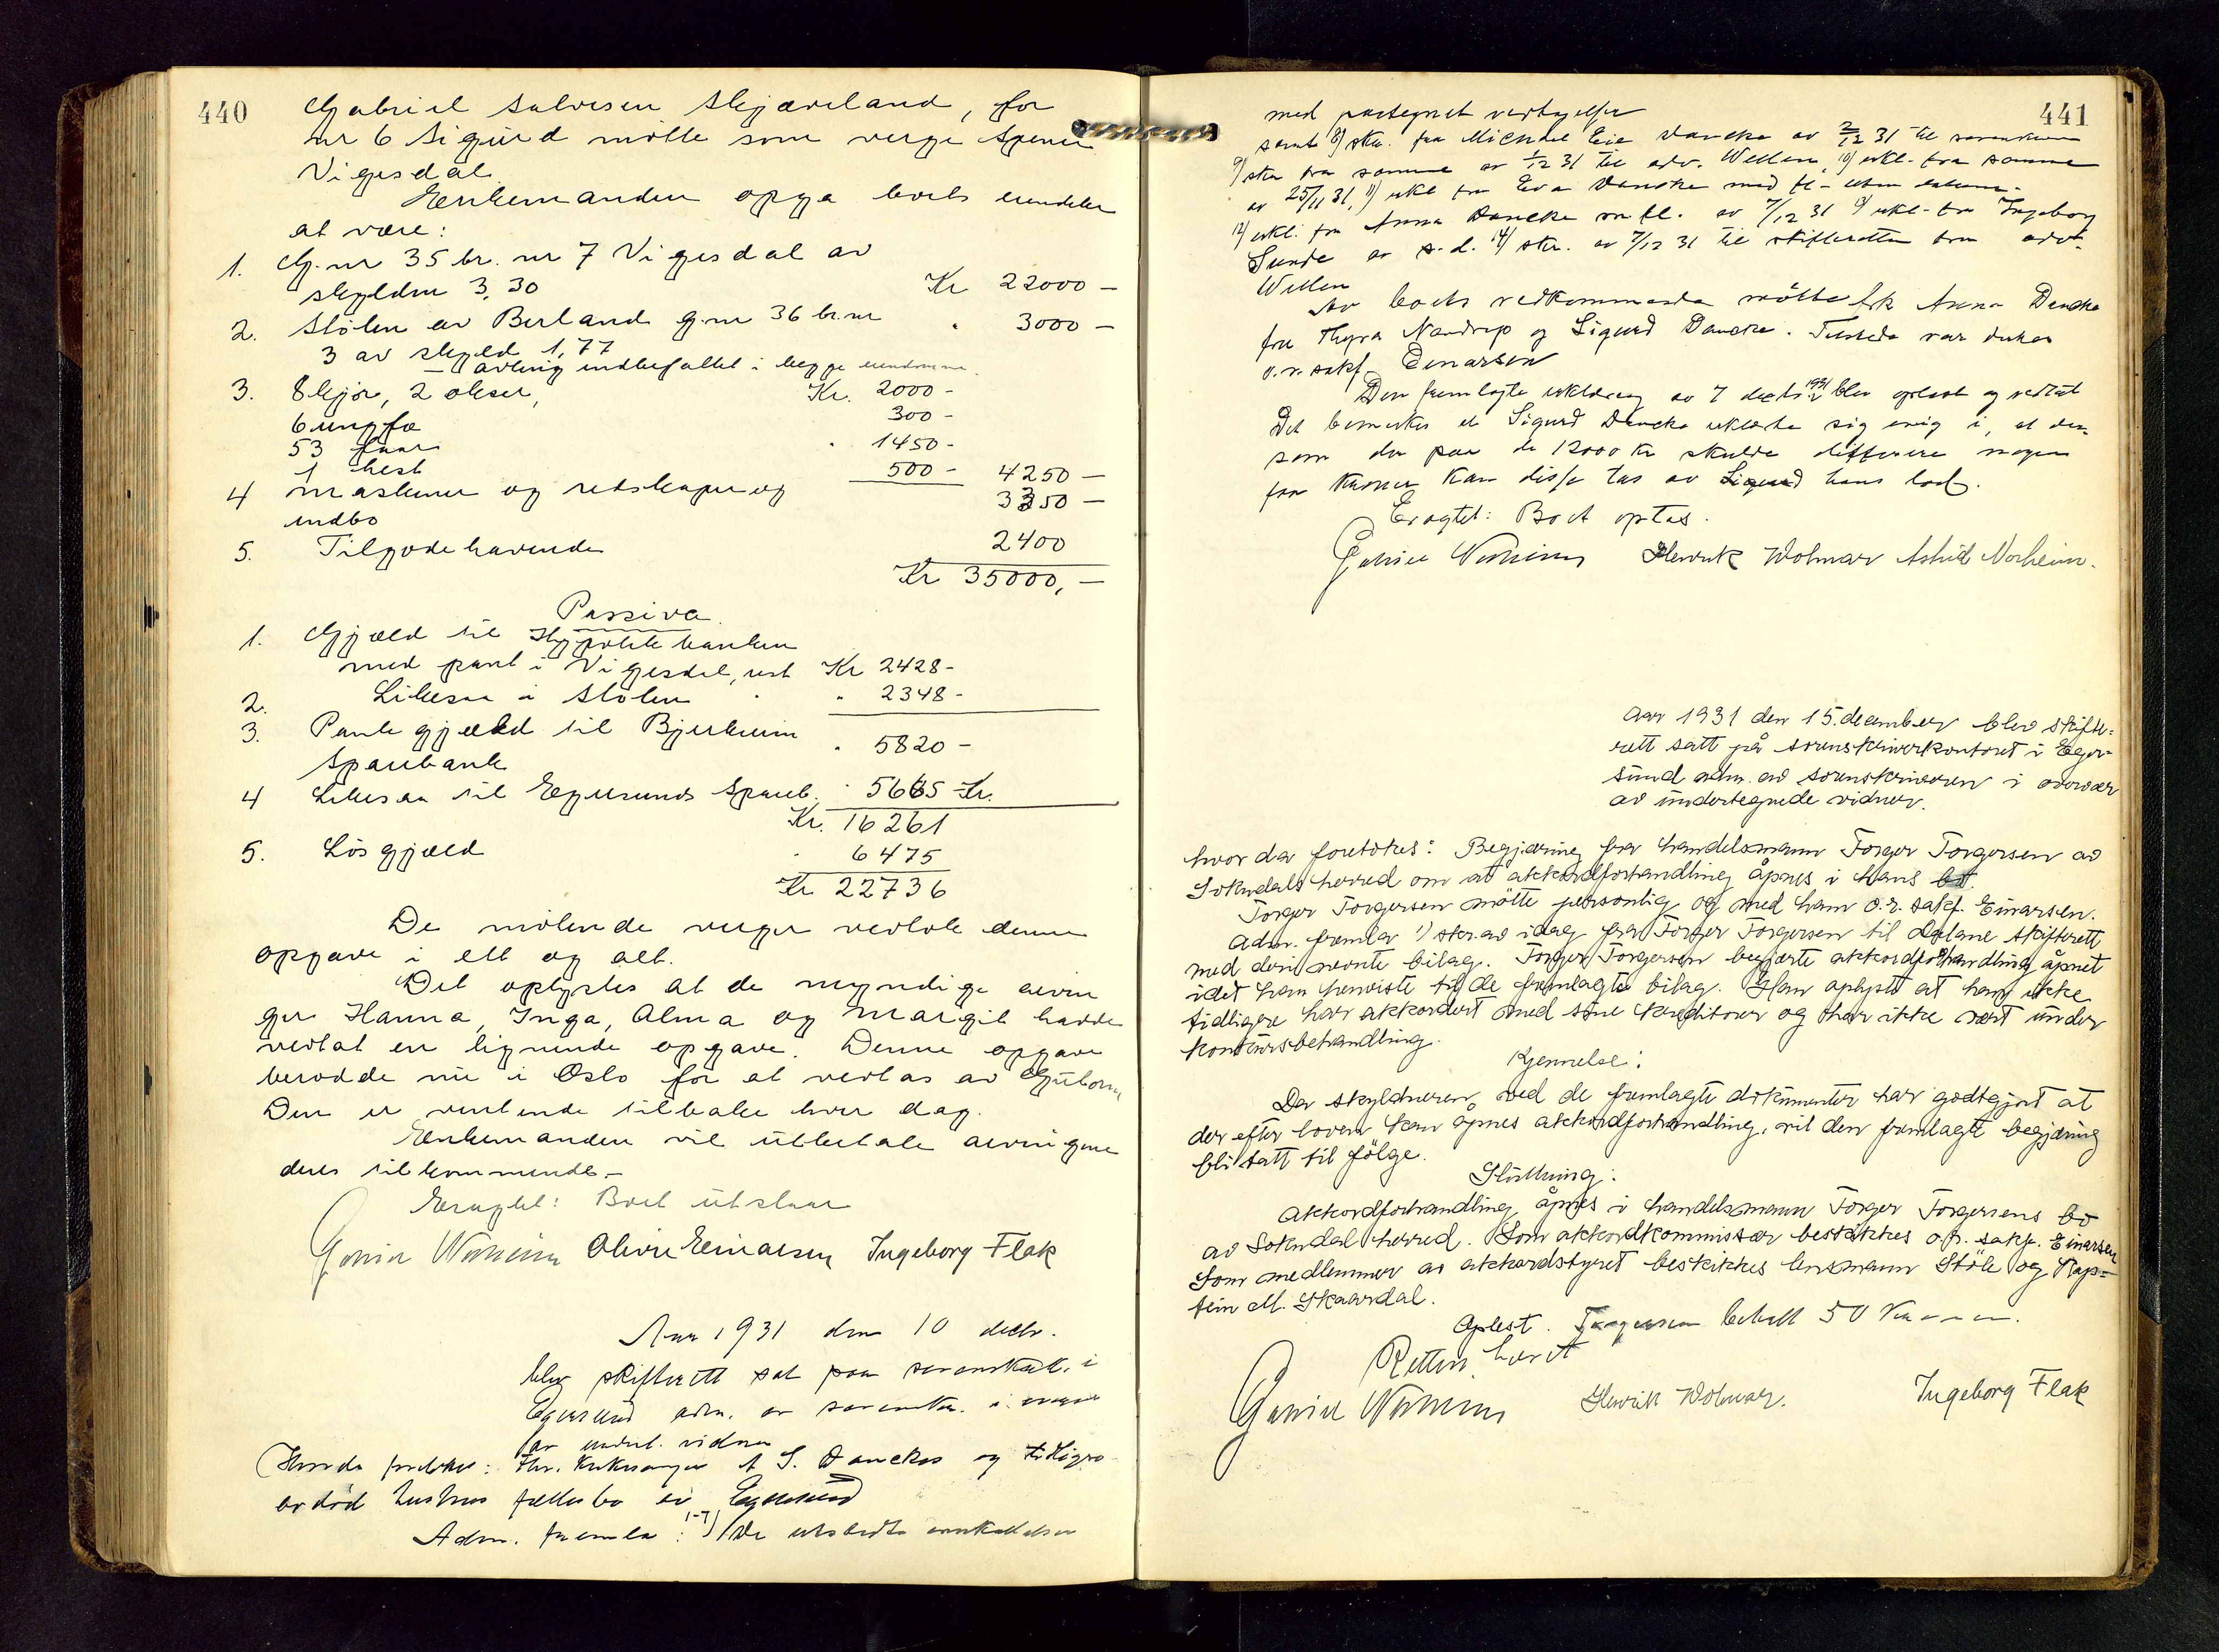 440
Gabriel Salvesen Skjæveland, for
nr 6 Sigurd mötte som verge Spener
Vigesdal.
Enkemanden opga boets eiendeler
at være:
1. G.nr 35 br. nr 7 Vigesdal av
skylden 3,30 Kr 22000 –
2. Stölen av Berland g.nr 36 br.nr " 3000 –
3 av skyld 1,77
– avling indbefattet i begge eiendomme.
3. 8 kjör, 2 okser, Kr. 2000 –
6 ungfæ 300 –
53 faar " 1450 –
1 hest 500 – 4250 –
4 Maskiner og redskaper og 3350 –
indbo
5. Tilgodehavende 2400
Kr 35000, –
Passiva
1. Gjæld til Hypotekbanken
med pant i Vigesdal, rest Kr 2428 –
2. Likesaa i Stölen " " 2348 –
3. Pantegjæld til Bjerkreim " 5820 –
Sparebank
4 Likesaa til Egersunds Spareb. " 5665 Kr.
Kr. 16261
5. Lösgjæld " 6475
Kr 22736
De mötende verger vedtok denne
opgave i ett og alt.
Det oplystes at de myndige arvin
ger Hanna, Inga, Alma og Margit hadde
vedtat en lignende opgave. Denne opgave
berodde nu i Oslo for at vedtas av Guttorm
Den er ventende tilbake hver dag.
Enkemanden vil utbetale arvingene
deres tilkommende. –
Eragtet: Boet utslaar
Olivie Einarsen Ingeborg Flak
Aar 1931 den 10 decbr.
blev skifterett sat paa sorenskrk. i
Egersund adm. av sorenskr. i nærv
av undert. vidner
Hvorda foretokes: Fhv. Kirkesanger A S. Danckes og tidligere
avdöd hustrus fællesbo av Egersund
Adm. fremla: 1-7) De utstedte innkallelser
441
med paategnet vedtagelse
samt 8) skr. fra Michael Eie Dancke av 2/12 31 til sorenskriveren
9) skr fra samme av 1/12 31 til adv. Wellen, 10) erkl. fra samme
av 25/11 31, 11) erkl fra Eva Dancke med fl – uten datum.
12) erkl. fra Anna Dancke m fl. av 7/12 31 erkl. fra Ingeborg
Sunde av s. d. 14) skr. av 7/12 31 til skifteretten fra adv.
Wellen
Av boets vedkommende mötte frk Anna Dancke
fru Thyra Nandrup og Sigurd Dancke. Tilstede var dessuten
o.r. sakf. Einarsen
Den fremlagte erklæring av 7 decbr 1931 blev oplest og vedtat
Det bemerkes at Sigurd Dancke erklærte sig enig i, at den
som der paa de 12000 kr skulde differere nogen
faa kroner kan disse tas av Sigurd hans lod.
Eragtet: Boet optas.
Henrik Wolmar Astrid Norheim.
Aar 1931 den 15. december blev skifte=
rett satt på sorenskriverkontoret i Eger=
sund adm. av sorenskriveren i overvær
av undertegnede vidner.
hvor da foretokes: Begjæring fra handelsmann Torger Torgersen av
Sokndals herred om at akkordforhandling åpnes i hans bo.
Torger Torgersen mötte personlig og med ham o.r. sakf. Einarsen.
Adm. fremla 1) skr. av idag fra Torger Torgersen til Dalane skifterett
med deri nevnte bilag. Torger Torgersen begjærte akkordforhandling åpnet
idet han henviste til de fremlagte bilag. Han oplyste at han ikke
tidligere har akkordert med sine kreditorer og har ikke vært under
konkursbehandling.
Kjennelse:
Da skyldneren ved de fremlagte dokumenter har godtgjort at
der efter loven kan åpnes akkordforhandling, vil den fremlagte begjæring
bli tatt til fölge.
Slutning:
Akkordforhandling åpnes i handelsmann Torger Torgersens bo
av Sokndal herred. Som akkordkommissær beskikkes o.r. sakf. Einarsen
Som medlemmer av akkordstyret beskikkes lensmann Stöle og Kap=
tein M. Skaardal.
Oplest. Torgersen betalt 50 Kroner.
Retten hævet
Henrik Wolmar. Ingeborg Flak